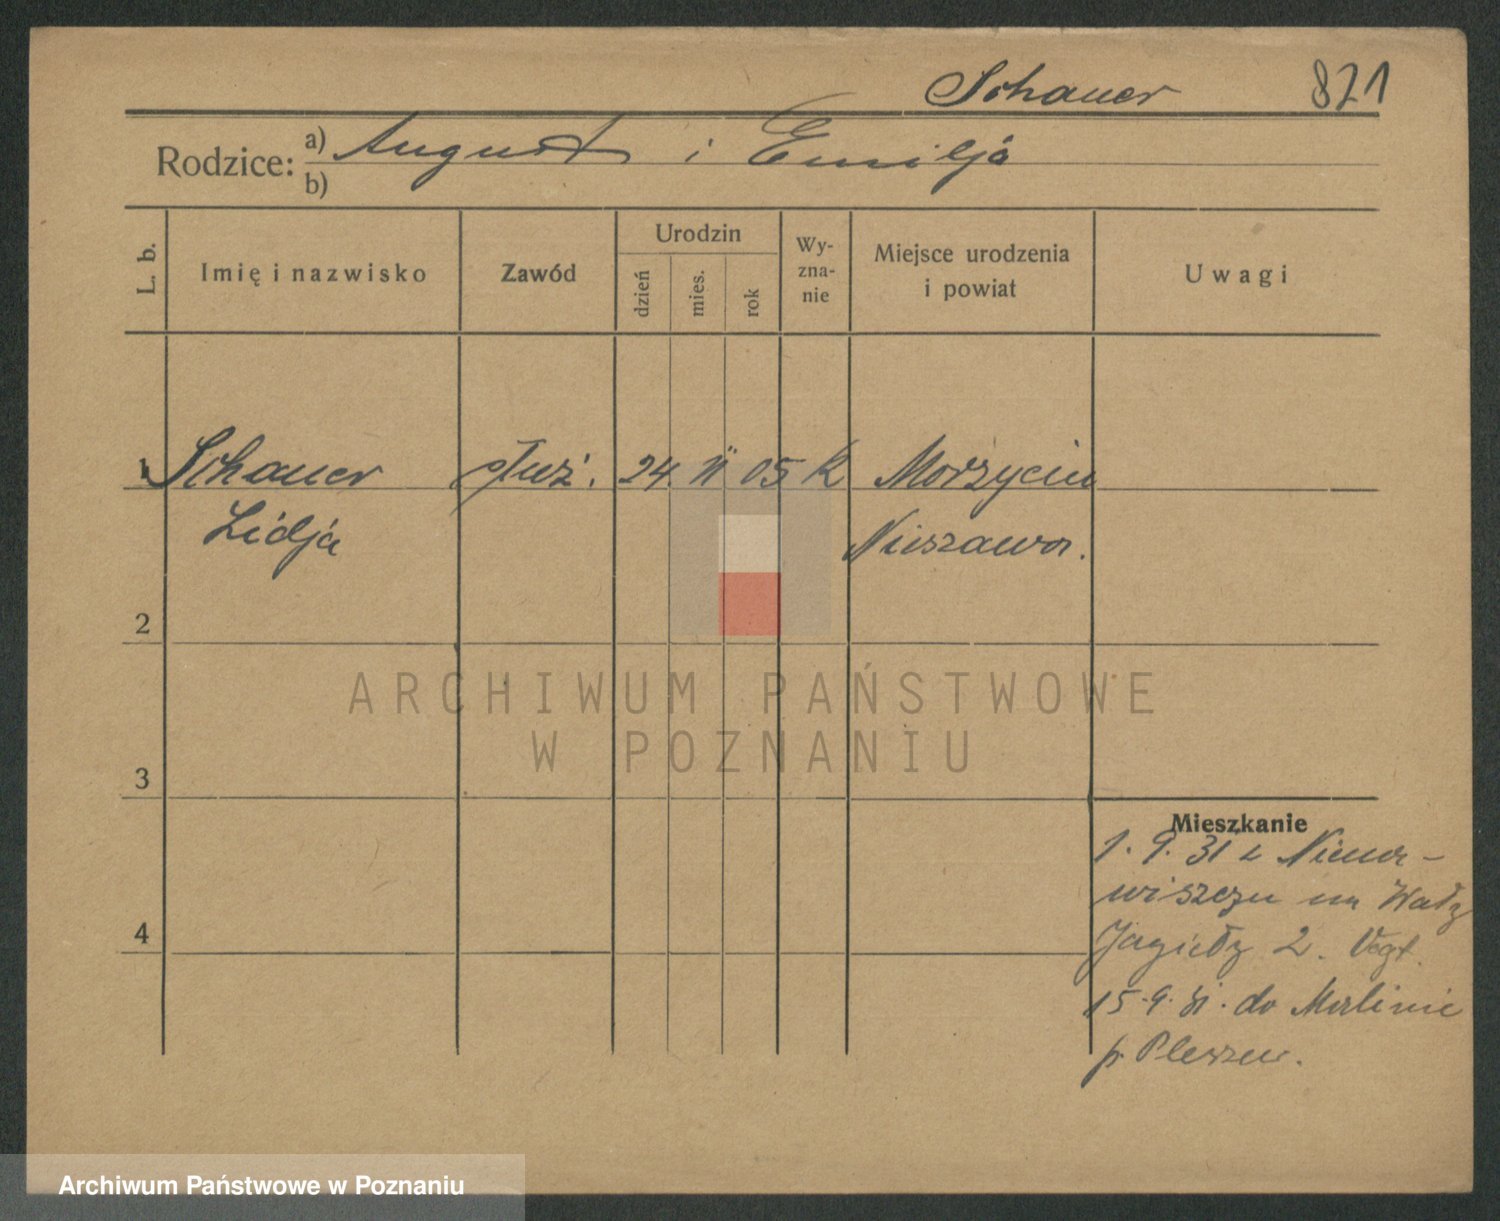 Schauer 821
Rodzice: a) August i Emilja
b)
L. b. Imię i nazwisko Zawód Urodzin dzień mies. rok Wy-zna-nie Miejsce urodzenia i powiat Uwagi
1 Schauer służ. 24. II 05 K Morzycin
Lidja Nieszawa.
2
3
4
Mieszkanie
1. 9. 31 z
na Wały
Jagiełły 2. Vogt.
15.9.31. do
p. Pleszew.
ARCHIWUM PAŃSTWOWE
W POZNANIU
Archiwum Państwowe w Poznaniu